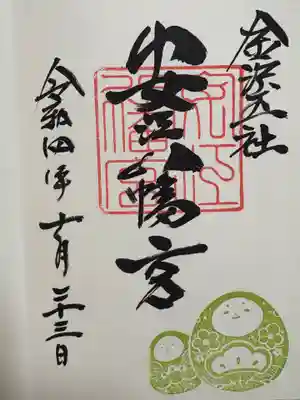 金沢五社
安江八幡宮
令和四年十月二十三日